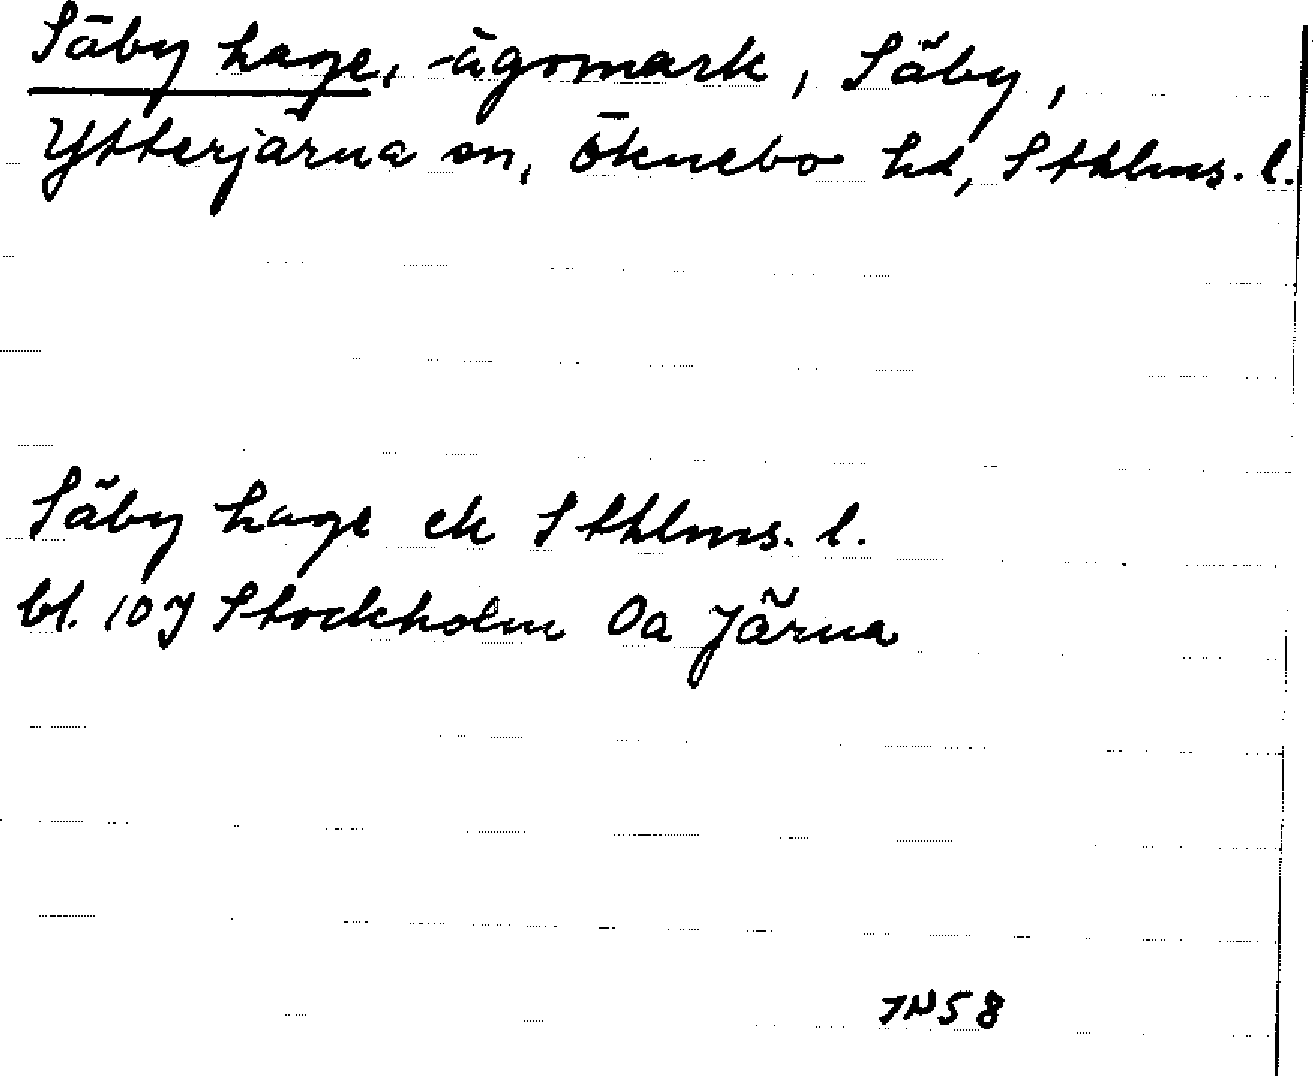 Säby hage, ägomark, Säby,
Ytterjärna sn, Öknebo hd, Sthlms. l.
Säby hage ek Sthlms. l.
bl. 10J Stockholm 0a Järna
JN58